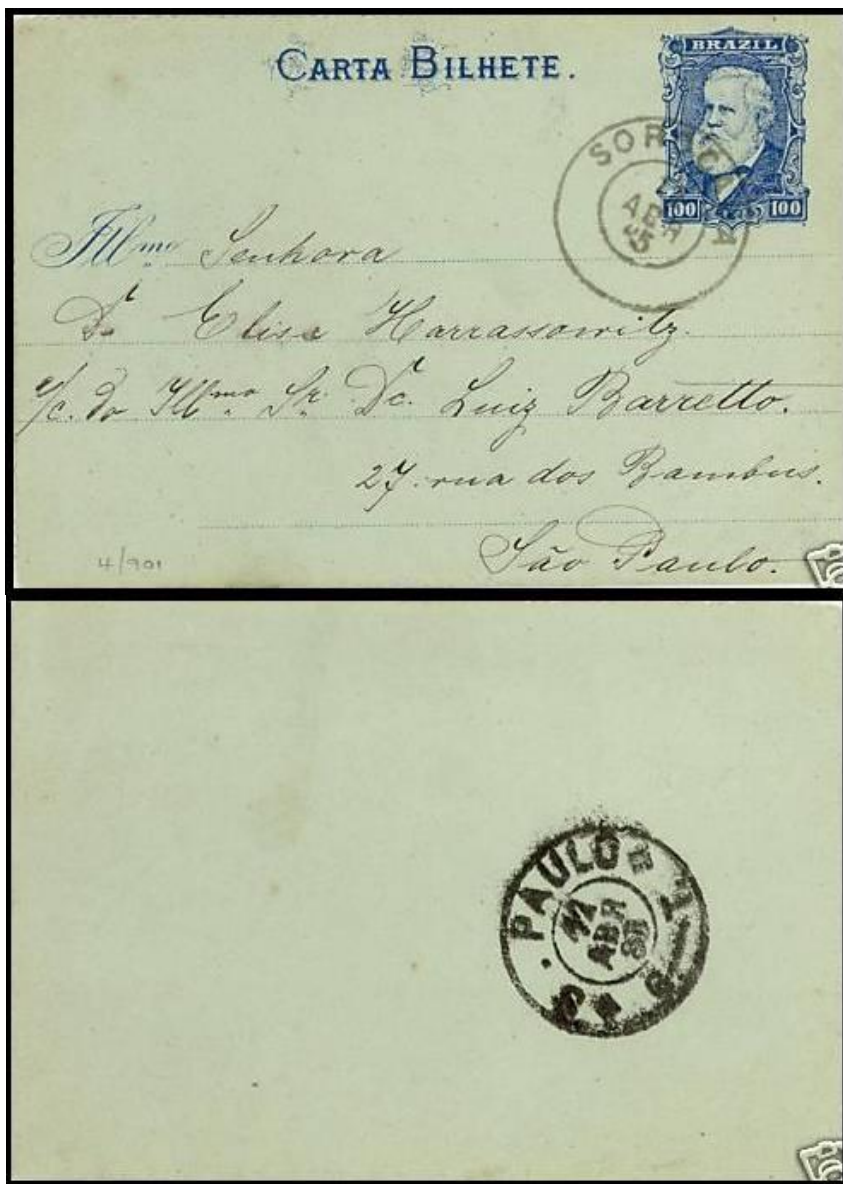 CARTA BILHETE.
BRAZIL
100 100
SOROCABA
ABR
Illmo Senhora
Da Elisa Harrassowitz.
a/c. do Illmo. Sr. Dr. Luiz Barretto.
27. rua dos Bambus.
São Paulo.
4/901
S. PAULO
ABR